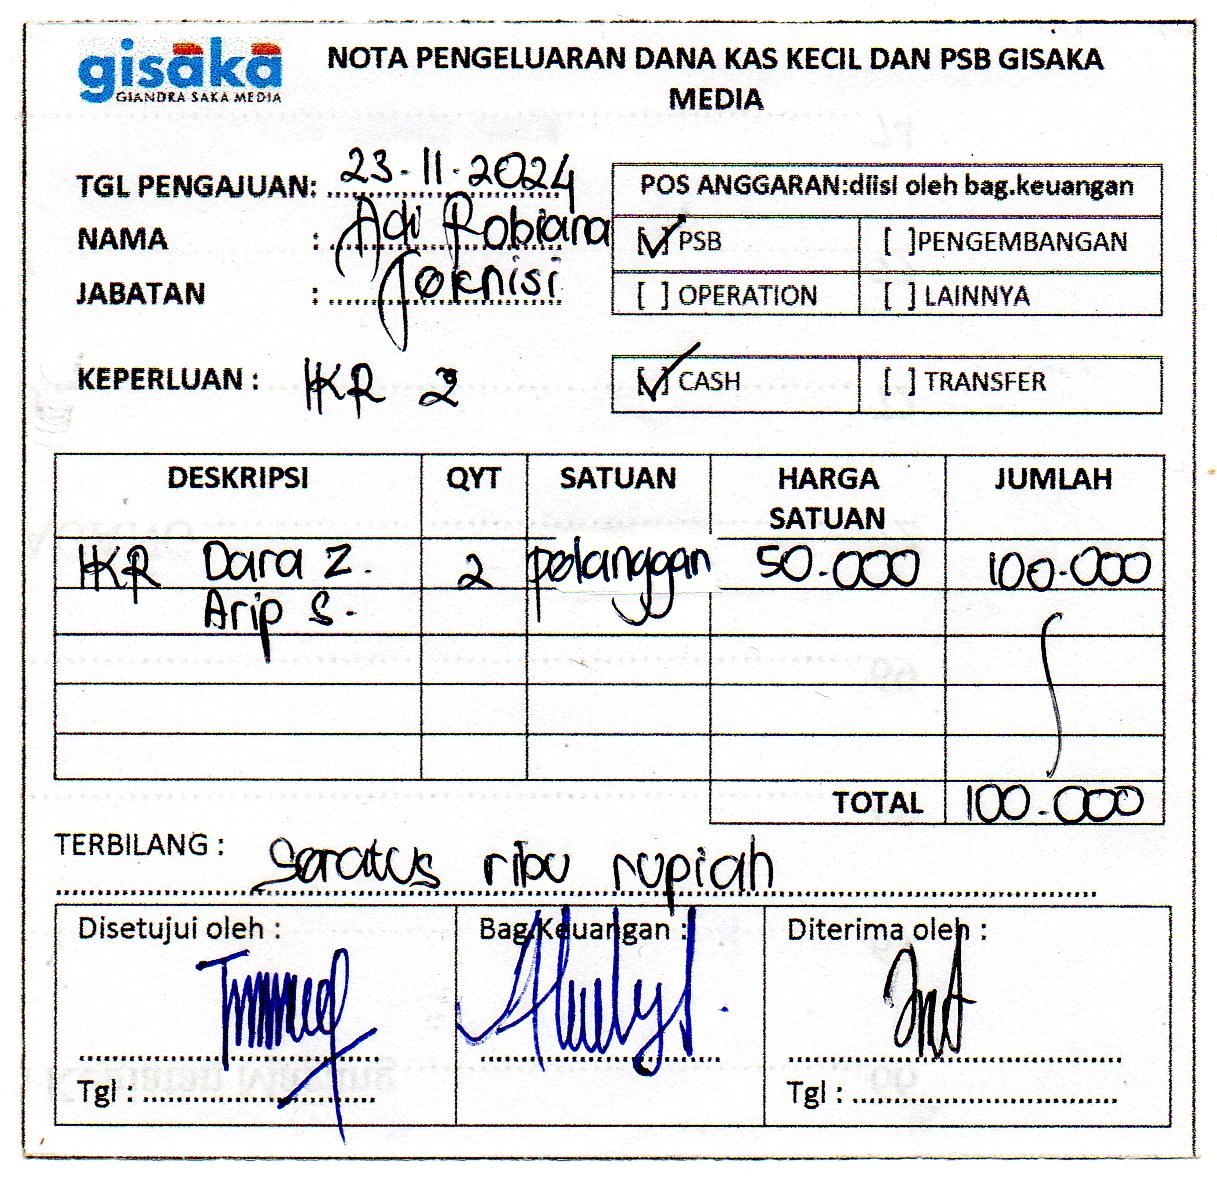 gisaka
GIANDRA SAKA MEDIA
NOTA PENGELUARAN DANA KAS KECIL DAN PSB GISAKA
MEDIA
TGL PENGAJUAN: 23-11-2024
NAMA : Adi Robiana
JABATAN : Teknisi
POS ANGGARAN:diisi oleh bag.keuangan
[✓] PSB [ ]PENGEMBANGAN
[ ] OPERATION [ ] LAINNYA
KEPERLUAN : IKR 2
[✓] CASH [ ] TRANSFER
DESKRIPSI QYT SATUAN HARGA SATUAN JUMLAH
IKR Dara Z. 2 pelanggan 50.000 100.000
Arip S.
TOTAL 100.000
TERBILANG : Seratus ribu rupiah
Disetujui oleh : Bag.Keuangan : Diterima oleh :
Tgl : Tgl :